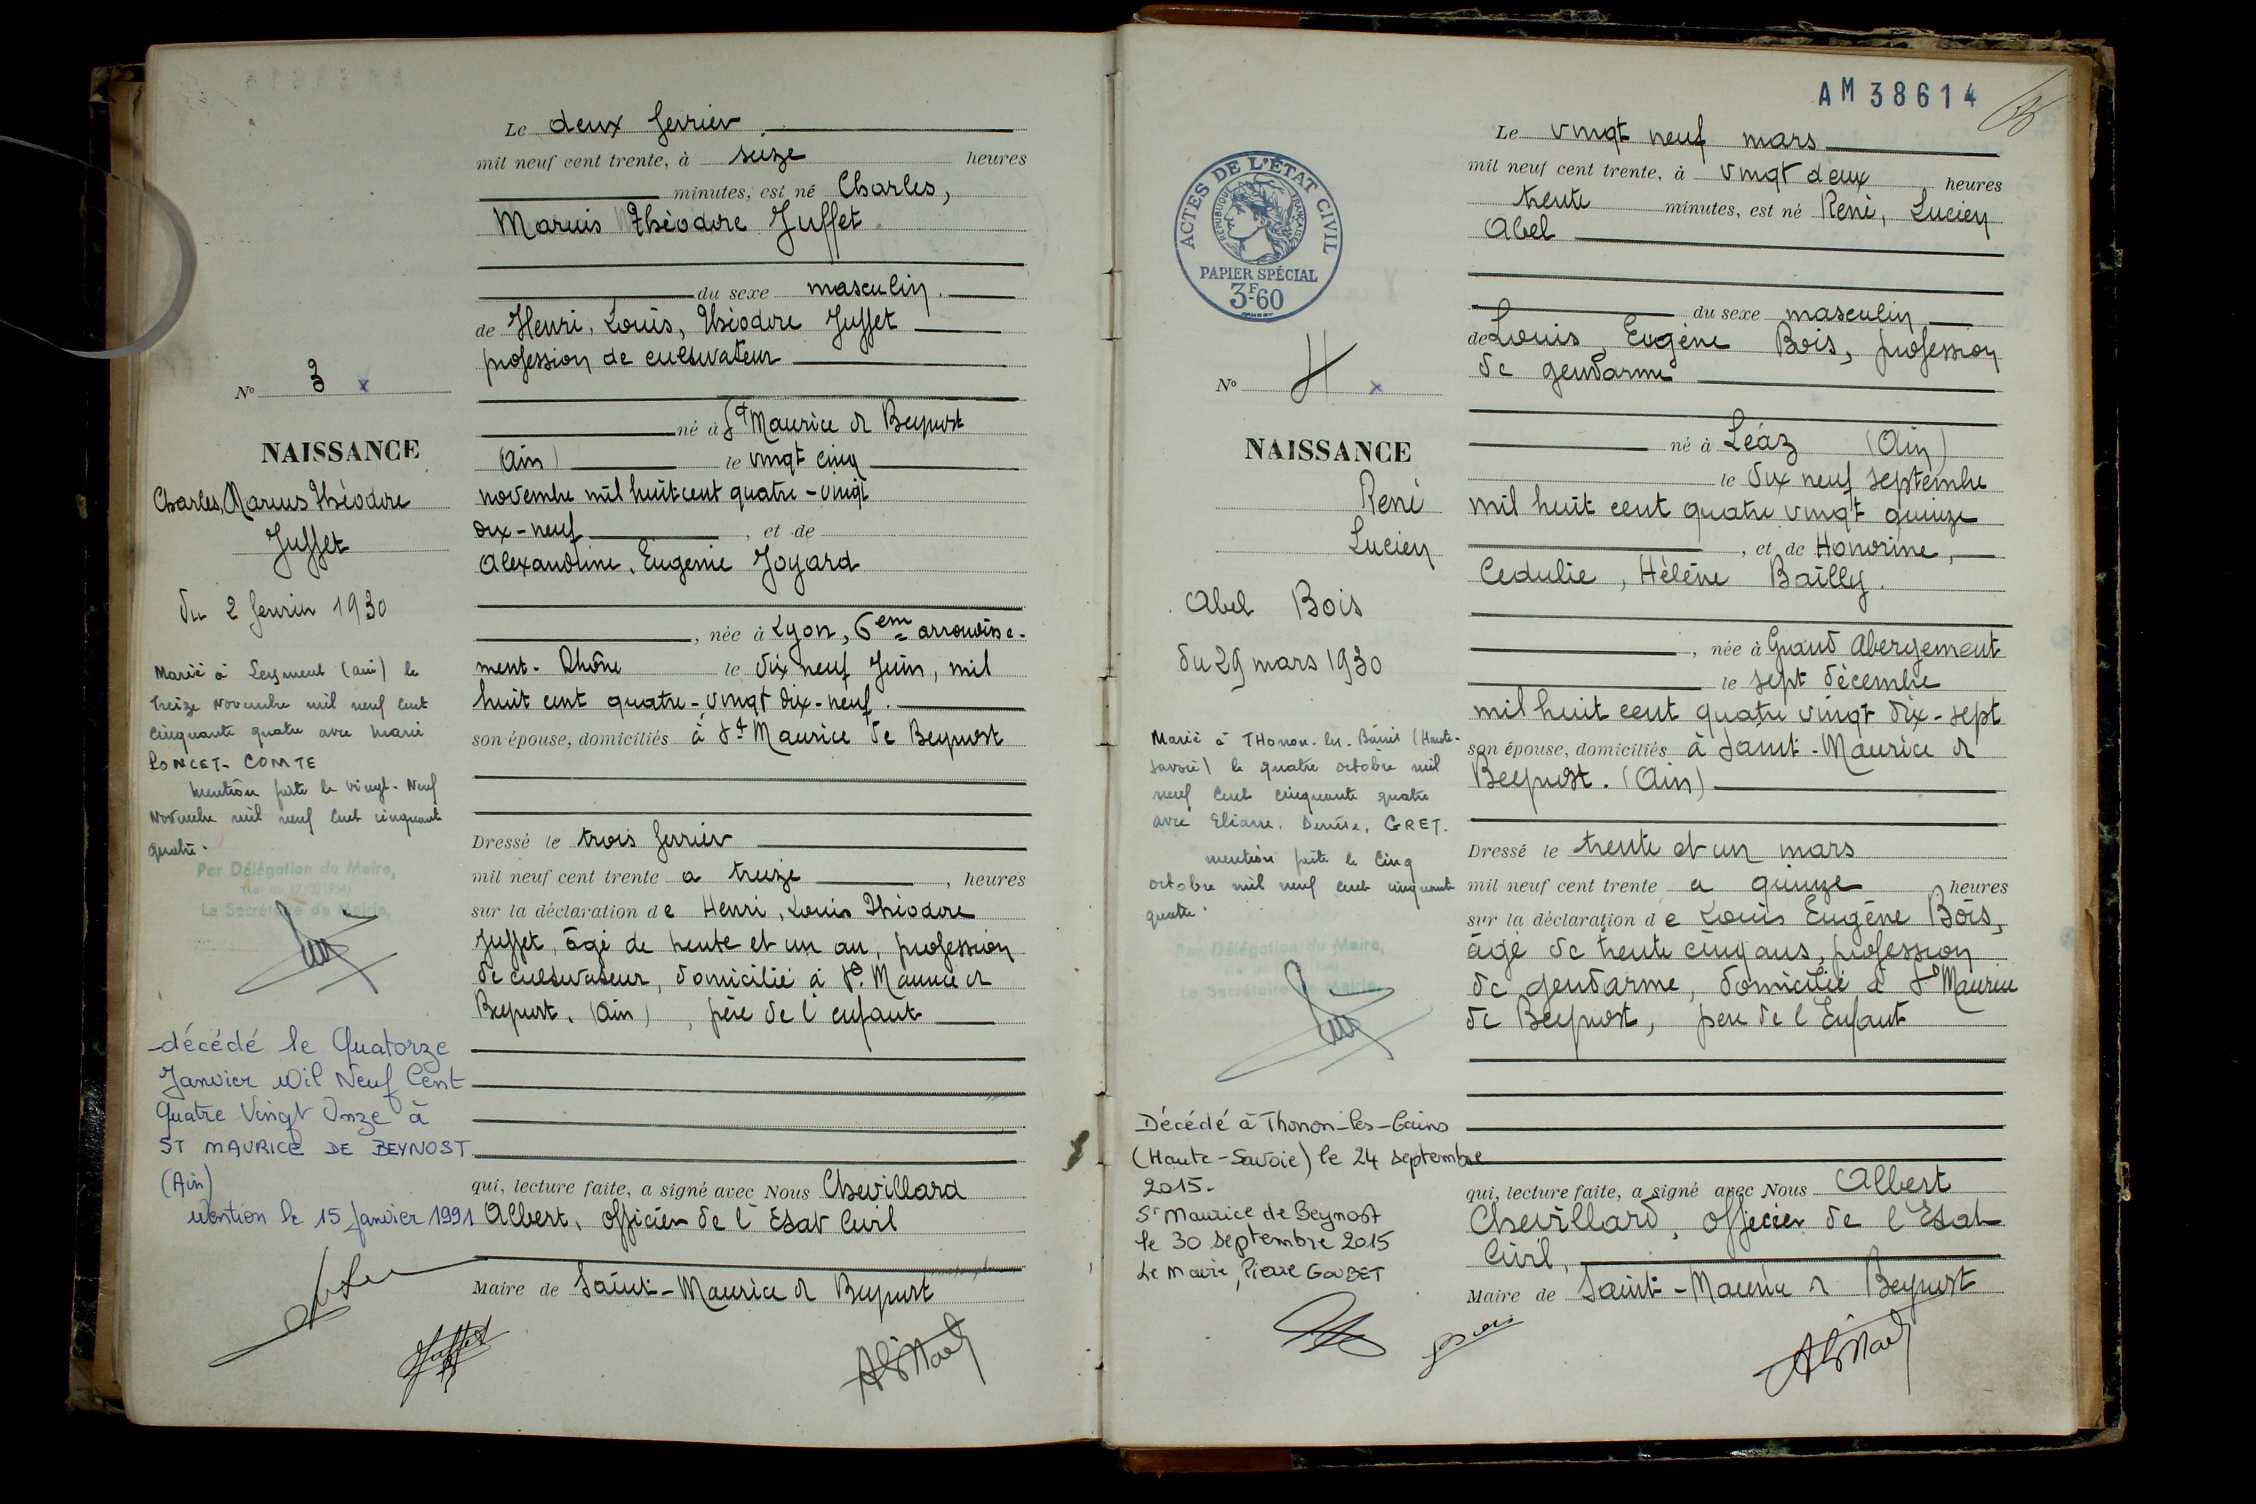 Le deux fevrier
mil neuf cent trente, à seize heures
minutes, est né Charles,
Marius Théodore Juffet
du sexe masculin.
de Henri, Louis, Théodore Juffet
profession de cultivateur
né à St Maurice de Beynost
(Ain) le vingt cinq
novembre mil huit cent quatre-vingt
dix-neuf, et de
Alexandrine, Eugenie Joyard
, née à Lyon, 6em arrondisse-
ment. Rhône le dix neuf Juin, mil
huit cent quatre-vingt dix-neuf.
son épouse, domiciliés à St Maurice de Beynost
Dressé le trois fevrier
mil neuf cent trente a treize, heures
sur la déclaration de Henri, Louis Théodore
Juffet, âgé de trente et un an, profession
de cultivateur, domicilié à St Maurice de
Beynost. (Ain), père de l'enfant
qui, lecture faite, a signé avec Nous Chevillard
Albert, officier de l'Etat Civil
Maire de Saint-Maurice de Beynost
No 3 x
NAISSANCE
Charles, Marius Théodore
Juffet
du 2 fevrier 1930
Marié à Leyment (Ain) le
treize Novembre mil neuf cent
cinquante quatre avec Marie
PONCET-COMTE
mention faite le vingt-Neuf
Novembre mil neuf cent cinquante
quatre.
Par Délégation du Maire,
Le Secrétaire de Mairie,
décédé le Quatorze
Janvier Mil Neuf Cent
Quatre Vingt Onze à
ST MAURICE DE BEYNOST
(Ain)
Mention le 15 Janvier 1991
AM 38614
ACTES DE L'ETAT CIVIL
REPUBLIQUE FRANÇAISE
PAPIER SPÉCIAL
3F60
No 4 x
NAISSANCE
René
Lucien
Abel Bois
du 29 mars 1930
Marié à THonon-les-Bains (Haute-
Savoie) le quatre octobre mil
neuf cent cinquante quatre
avec Eliane, Denise, GRET.
mention faite le cinq
octobre mil neuf cent cinquante
quatre.
Par Délégation du Maire,
Le Secrétaire de Mairie,
Décédé à Thonon-les-bains
(Haute-Savoie) le 24 septembre
2015.
St Maurice de Beynost
le 30 septembre 2015
Le Maire, Pierre GOUBET
Le vingt neuf mars
mil neuf cent trente, à vingt deux heures
trente minutes, est né René, Lucien
Abel
du sexe masculin
de Louis, Eugène Bois, profession
de gendarme
né à Léaz (Ain)
le dix neuf septembre
mil huit cent quatre vingt quinze
, et de Honorine,
Cedulie, Hélène Bailly.
, née à Grand Abergement
le sept décembre
mil huit cent quatre vingt dix-sept
son épouse, domiciliés à Saint-Maurice de
Beynost. (Ain)
Dressé le trente et un mars
mil neuf cent trente a quinze heures
sur la déclaration de Louis Eugène Bois,
âgé de trente cinq ans, profession
de gendarme, domicilié à St Maurice
de Beynost, père de l'Enfant
qui, lecture faite, a signé avec Nous Albert
Chevillard, officier de l'Etat
Civil,
Maire de Saint-Maurice de Beynost